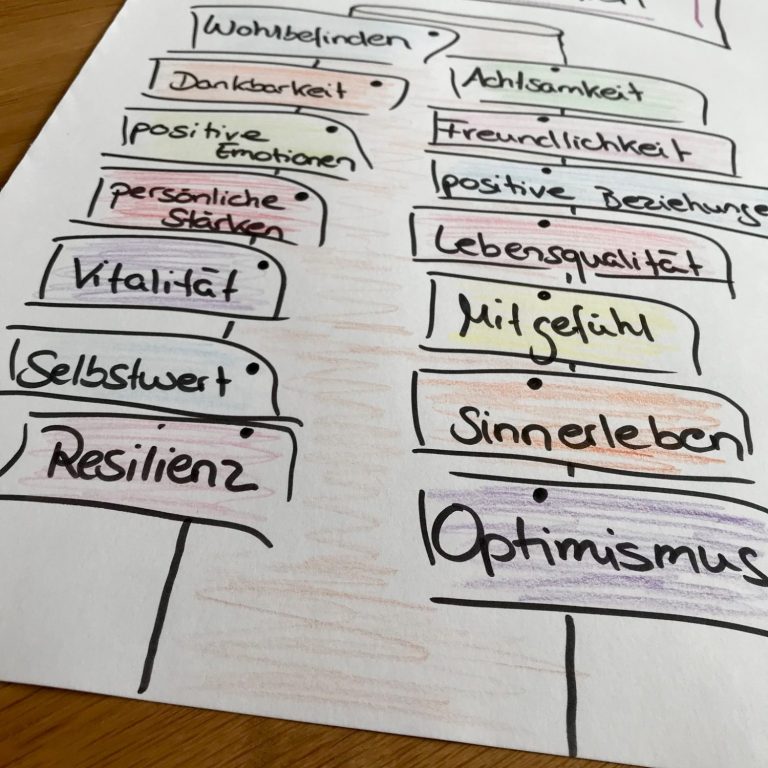 Wohlbefinden
Dankbarkeit
positive
Emotionen
persönliche
Stärken
Vitalität
Selbstwert
Resilienz
Achtsamkeit
Freundlichkeit
positive Beziehunge
Lebensqualität
Mitgefühl
Sinnerleben
Optimismus